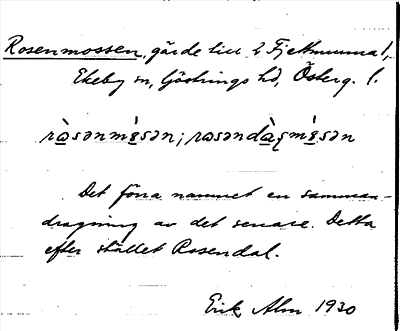 Rosenmossen, gärde till 2 Fjettmunna,
Ekeby sn, Göstrings hd, Österg. l.
ràsənmɛ̀sən; rɷsəndàɽmɛ̀sən
Det förra namnet en samman-
dragning av det senare. Detta
efter stället Rosendal.
Erik Alm 1930